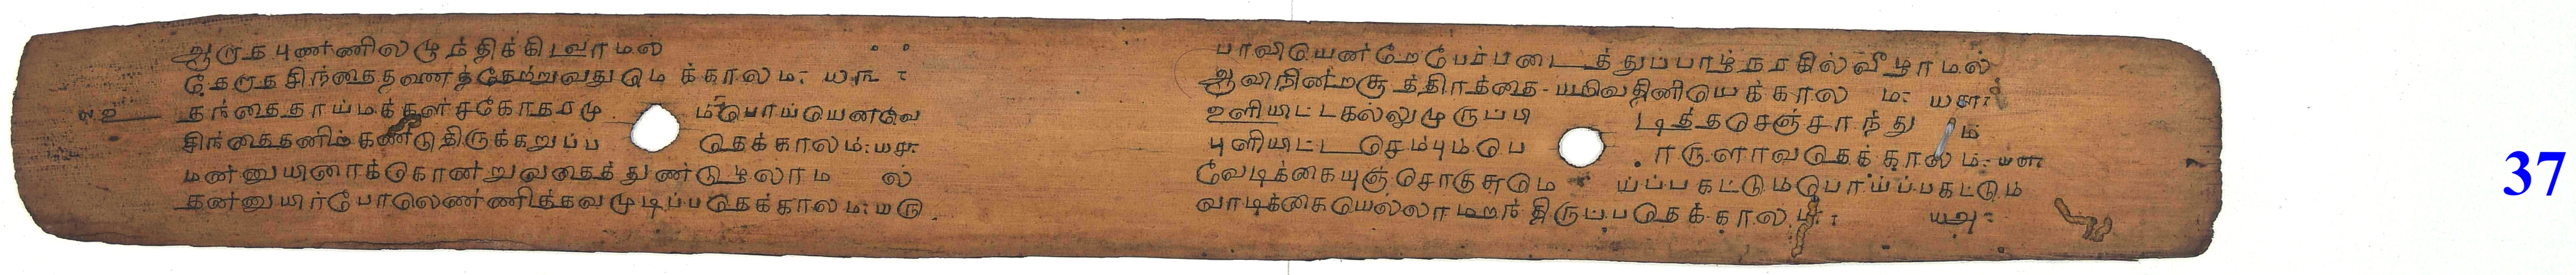 ஆறாத புண்ணிலழுந்திக்கிடவாமல்
தேறாத சிந்தைதனைத்தேற்றுவதுமெக்காலம் : ௰௩ :
தந்தைதாய்மக்கள்சகோதரமும்பொய்யெனவே
சிந்தைதனிற்கண்டுதிருக்கறுப்பதெக்காலம் : ௰௪ :
மன்னுயிரைக்கொன்றுவதைத்துண்டுழலாமல்
தன்னுயிர்போலெண்ணித்தவமுடிப்பதெக்காலம் : ௰௫
பாவியென்றேபேர்படைத்துப்பாழ்நரகில்வீழாமல்
ஆவிநின்றசூத்திரத்தை யறிவதினியெக்காலம் : ௰௬ :
உளியிட்டகல்லுமுருப்பிடித்தசெஞ்சாந்தும்
புளியிட்டசெம்பும்பொருளாவதெக்காலம் : ௰௭ :
வேடிக்கையுஞ்சொகுசுமெய்ப்பகட்டும்பொய்ப்பகட்டும்
வாடிக்கையெல்லாமறந்திருப்பதெக்காலம் : ௰௮ :
37